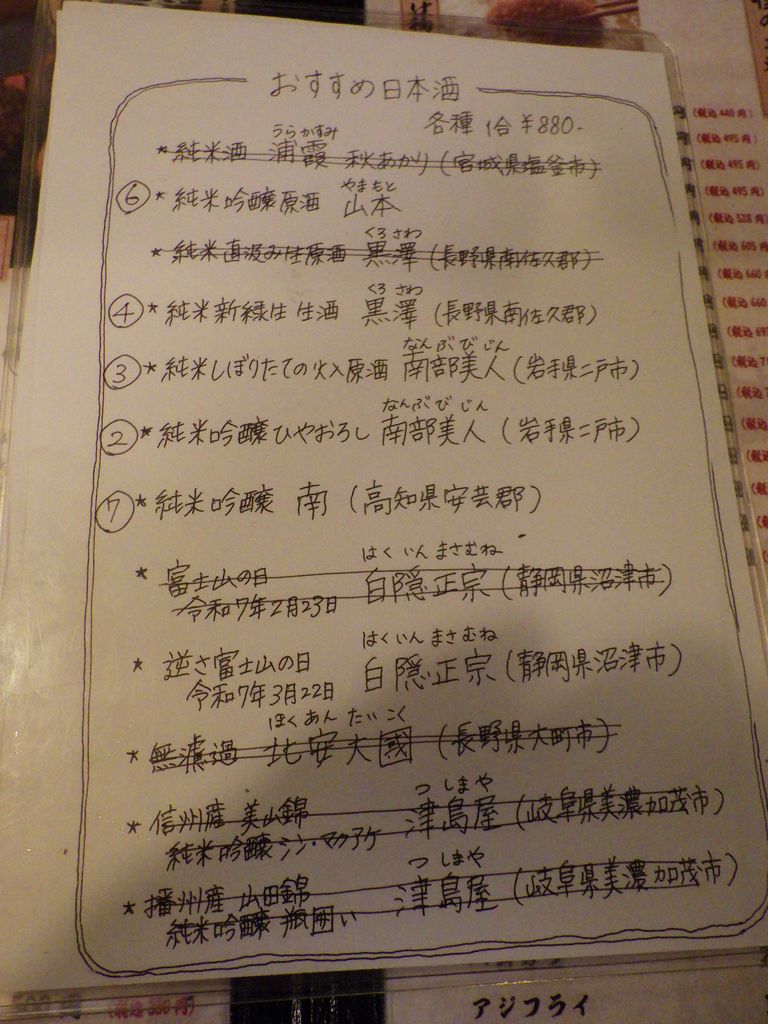 おすすめ日本酒
各種 1合 ¥880-
うらかすみ
* 純米酒 浦霞 秋あかり (宮城県塩釜市)
やまもと
⑥ * 純米吟醸原酒 山本
くろさわ
* 純米直汲み生原酒 黒澤 (長野県南佐久郡)
くろさわ
④ * 純米新緑生 生酒 黒澤 (長野県南佐久郡)
なんぶびじん
③ * 純米しぼりたての火入原酒 南部美人 (岩手県二戸市)
なんぶびじん
② * 純米吟醸ひやおろし 南部美人 (岩手県二戸市)
⑦ * 純米吟醸 南 (高知県安芸郡)
はくいんまさむね
* 富士山の日 白隠正宗 (静岡県沼津市)
令和7年2月23日
はくいんまさむね
* 逆さ富士山の日 白隠正宗 (静岡県沼津市)
令和7年3月22日
ほくあんたいこく
* 無濾過 北安大國 (長野県大町市)
つしまや
* 信州産 美山錦 津島屋 (岐阜県美濃加茂市)
純米吟醸 シン・マクアケ
つしまや
* 播州産 山田錦 津島屋 (岐阜県美濃加茂市)
純米吟醸 瓶囲い
円 (税込 440 円)
(税込 495 円)
(税込 495 円)
(税込 495 円)
(税込 528 円)
(税込 605 円)
(税込 660 円)
(税込 660
アジフライ